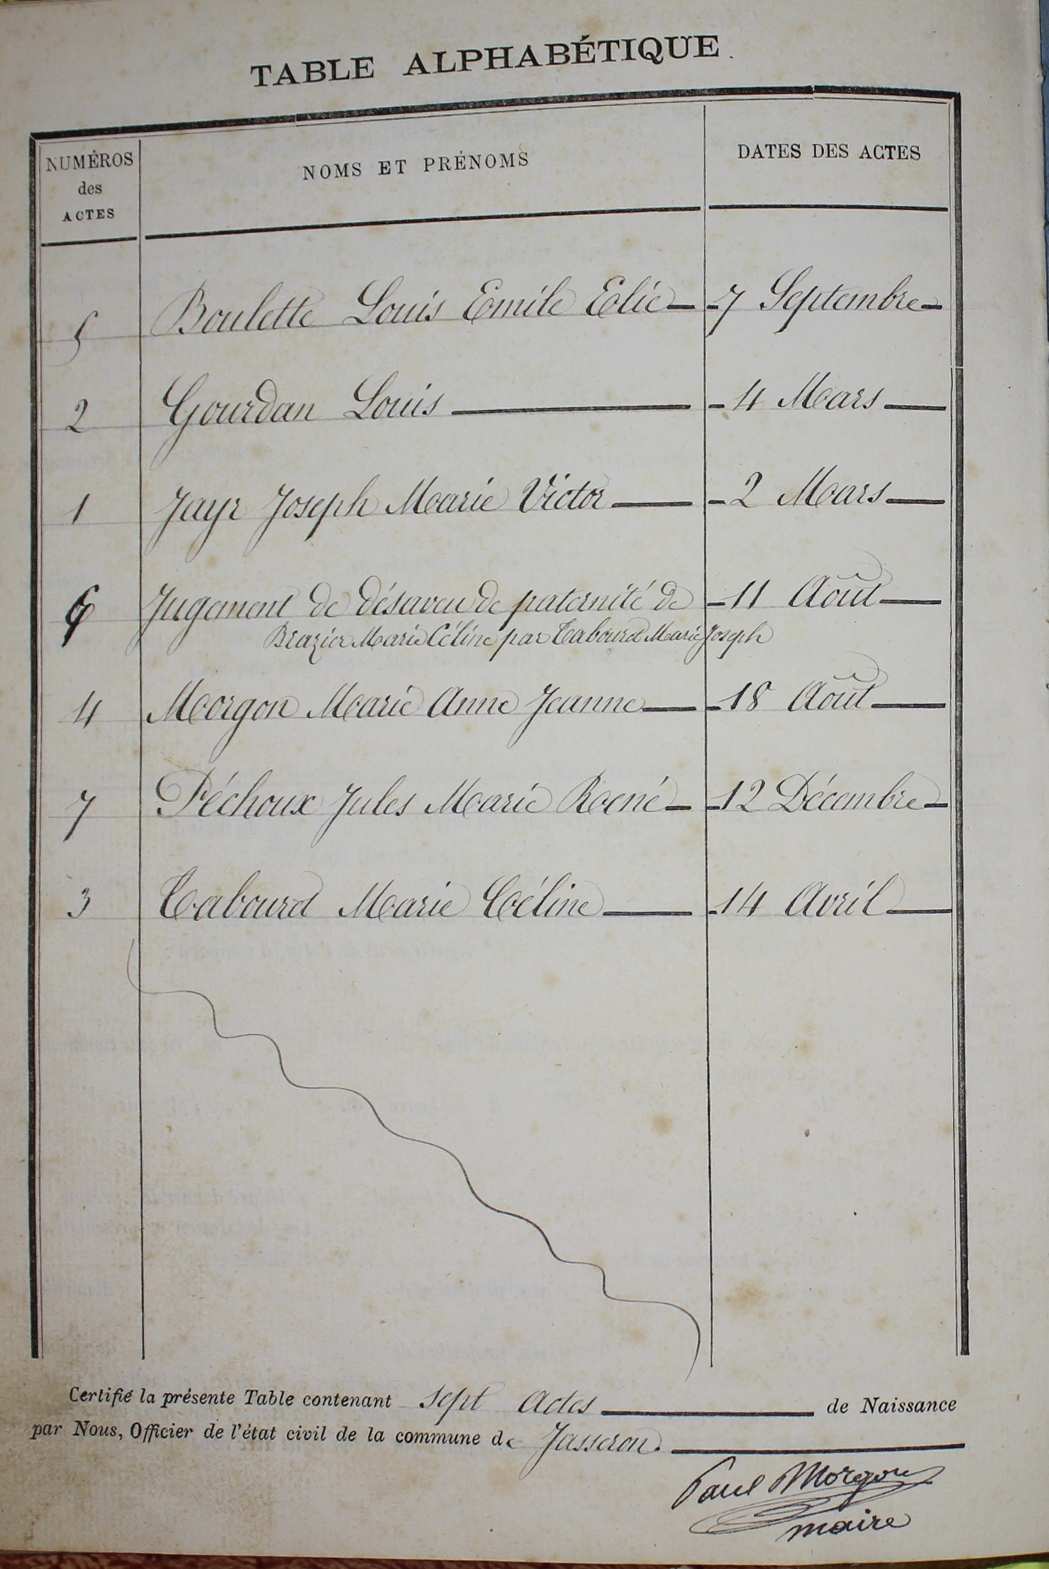 TABLE ALPHABÉTIQUE.
NUMÉROS des ACTES
NOMS ET PRÉNOMS
DATES DES ACTES
5 Boulette Louis Emile Elie 7 Septembre
2 Gourdan Louis 4 Mars
1 Jayr Joseph Marie Victor 2 Mars
6 Jugement de désaveu de paternité de 11 Août
Brazier Marie Céline par Tabouret Marie Joseph
4 Morgon Marie Anne Jeanne 18 Août
7 Péchoux Jules Marie René 12 Décembre
3 Tabouret Marie Céline 14 Avril
Certifié la présente Table contenant sept actes de Naissance
par Nous, Officier de l'état civil de la commune de Jasseron.
Paul Morgon
maire